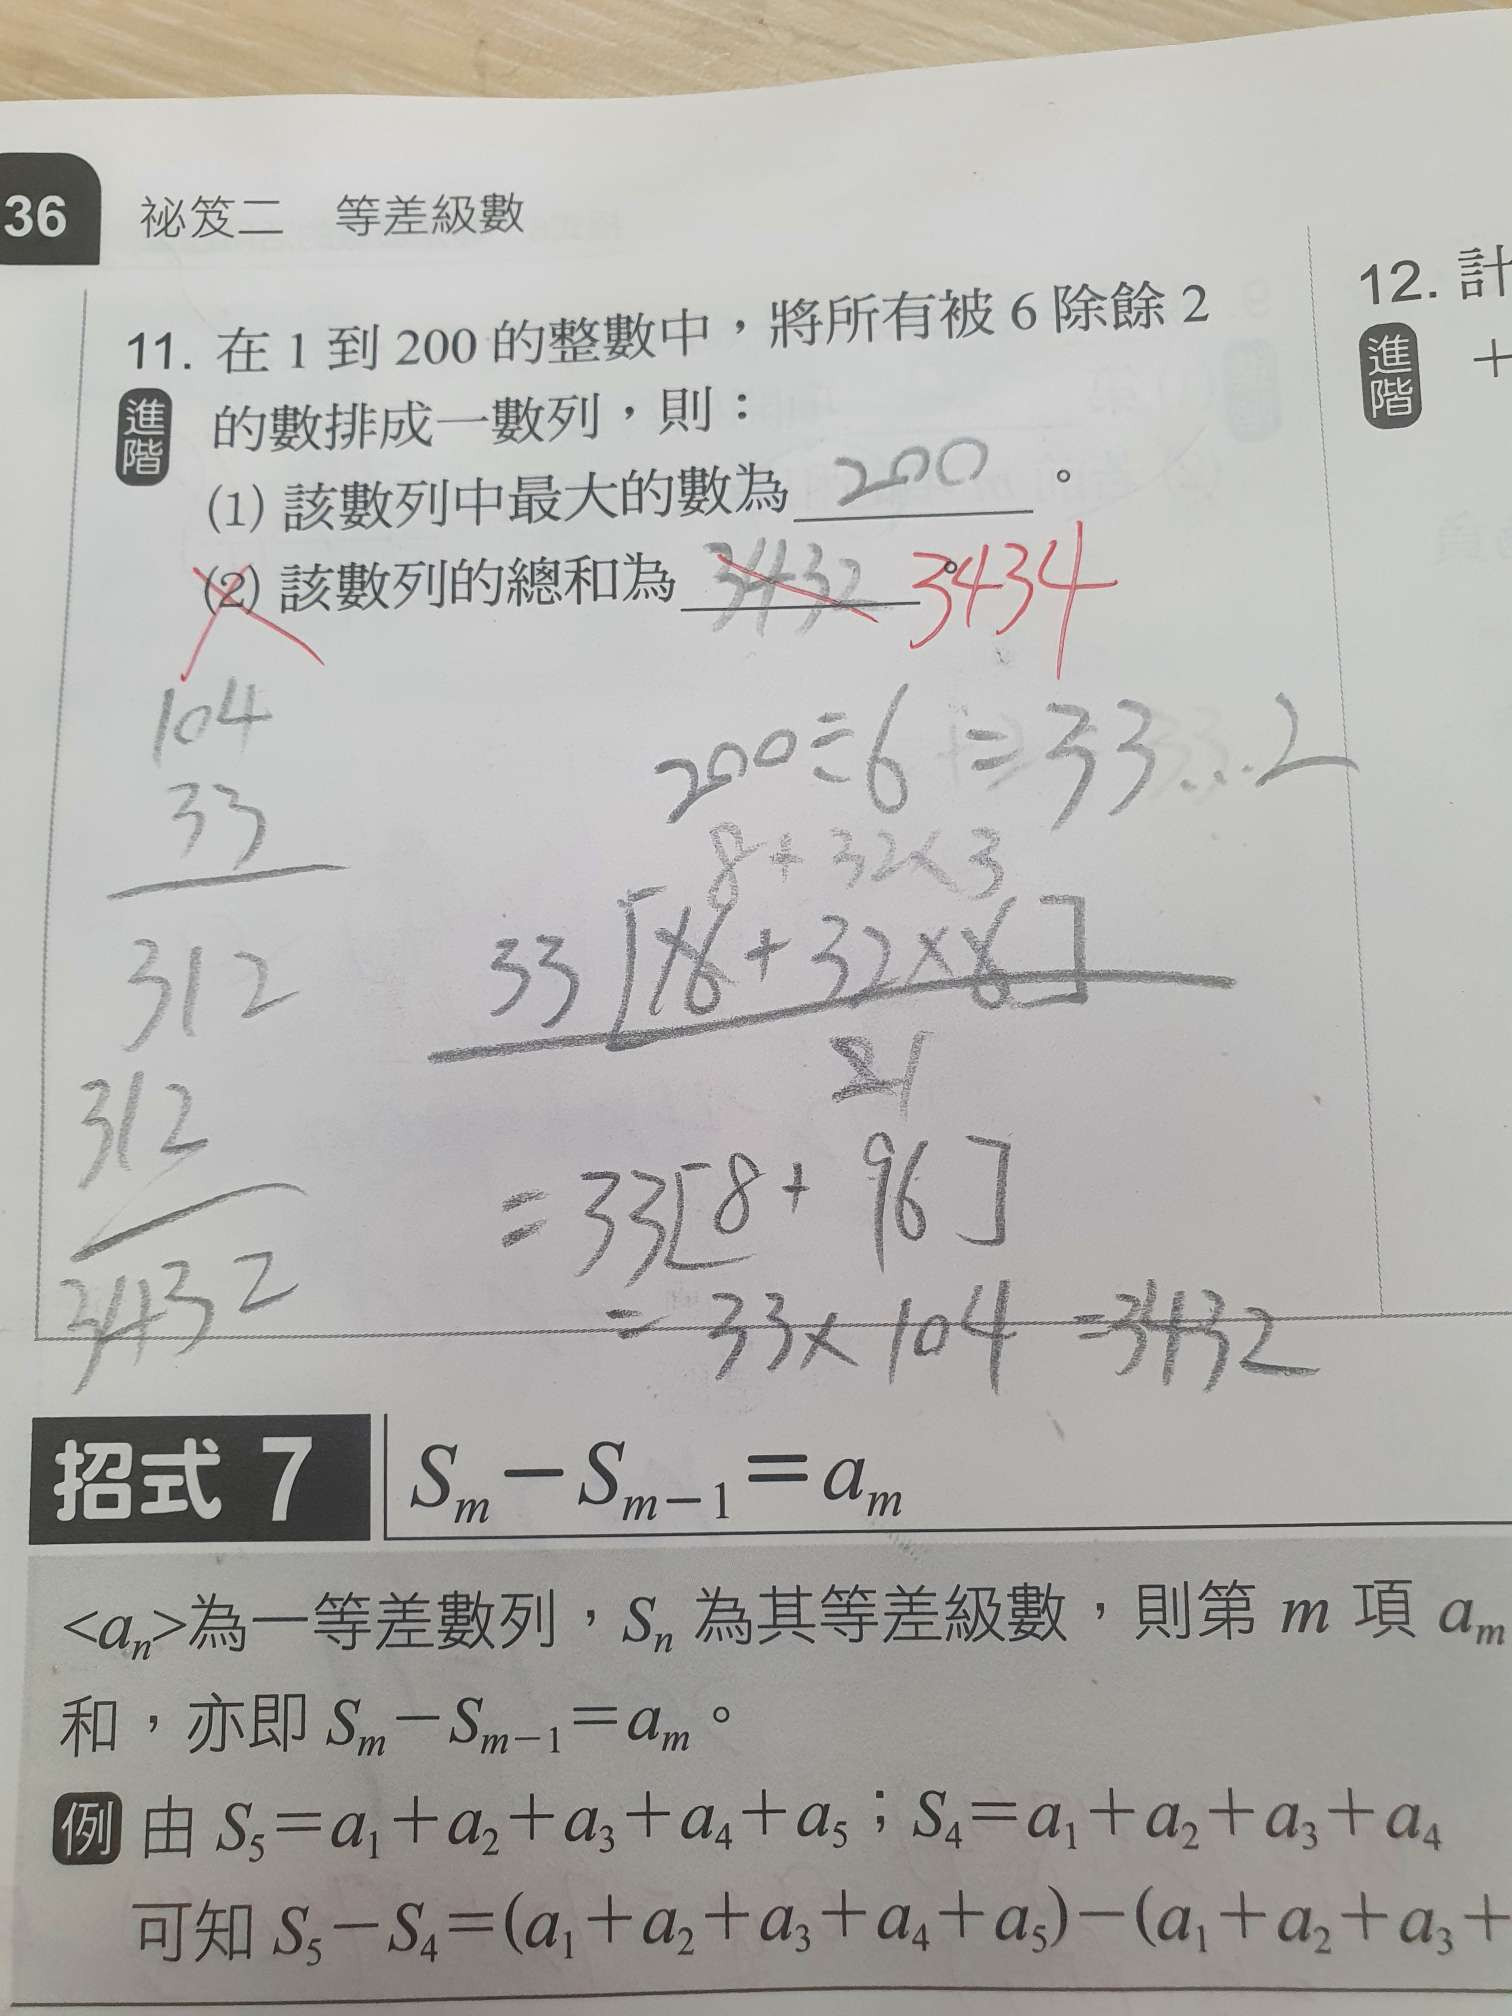 36 祕笈二 等差級數
11. 在 1 到 200 的整數中，將所有被 6 除餘 2
進階 的數排成一數列，則：
(1) 該數列中最大的數為 200 。
(2) 該數列的總和為 3432 。 3434
104
33
312
312
3432
200÷6=33...2
8+32×3
33[16+32×6]
2 1
=33[8+96]
=33×104=3432
12. 計
進階 +
招式 7 Sm－Sm－1＝am
<an>為一等差數列，Sn 為其等差級數，則第 m 項 am
和，亦即 Sm－Sm－1＝am。
例 由 S5＝a1＋a2＋a3＋a4＋a5；S4＝a1＋a2＋a3＋a4
可知 S5－S4＝(a1＋a2＋a3＋a4＋a5)－(a1＋a2＋a3＋